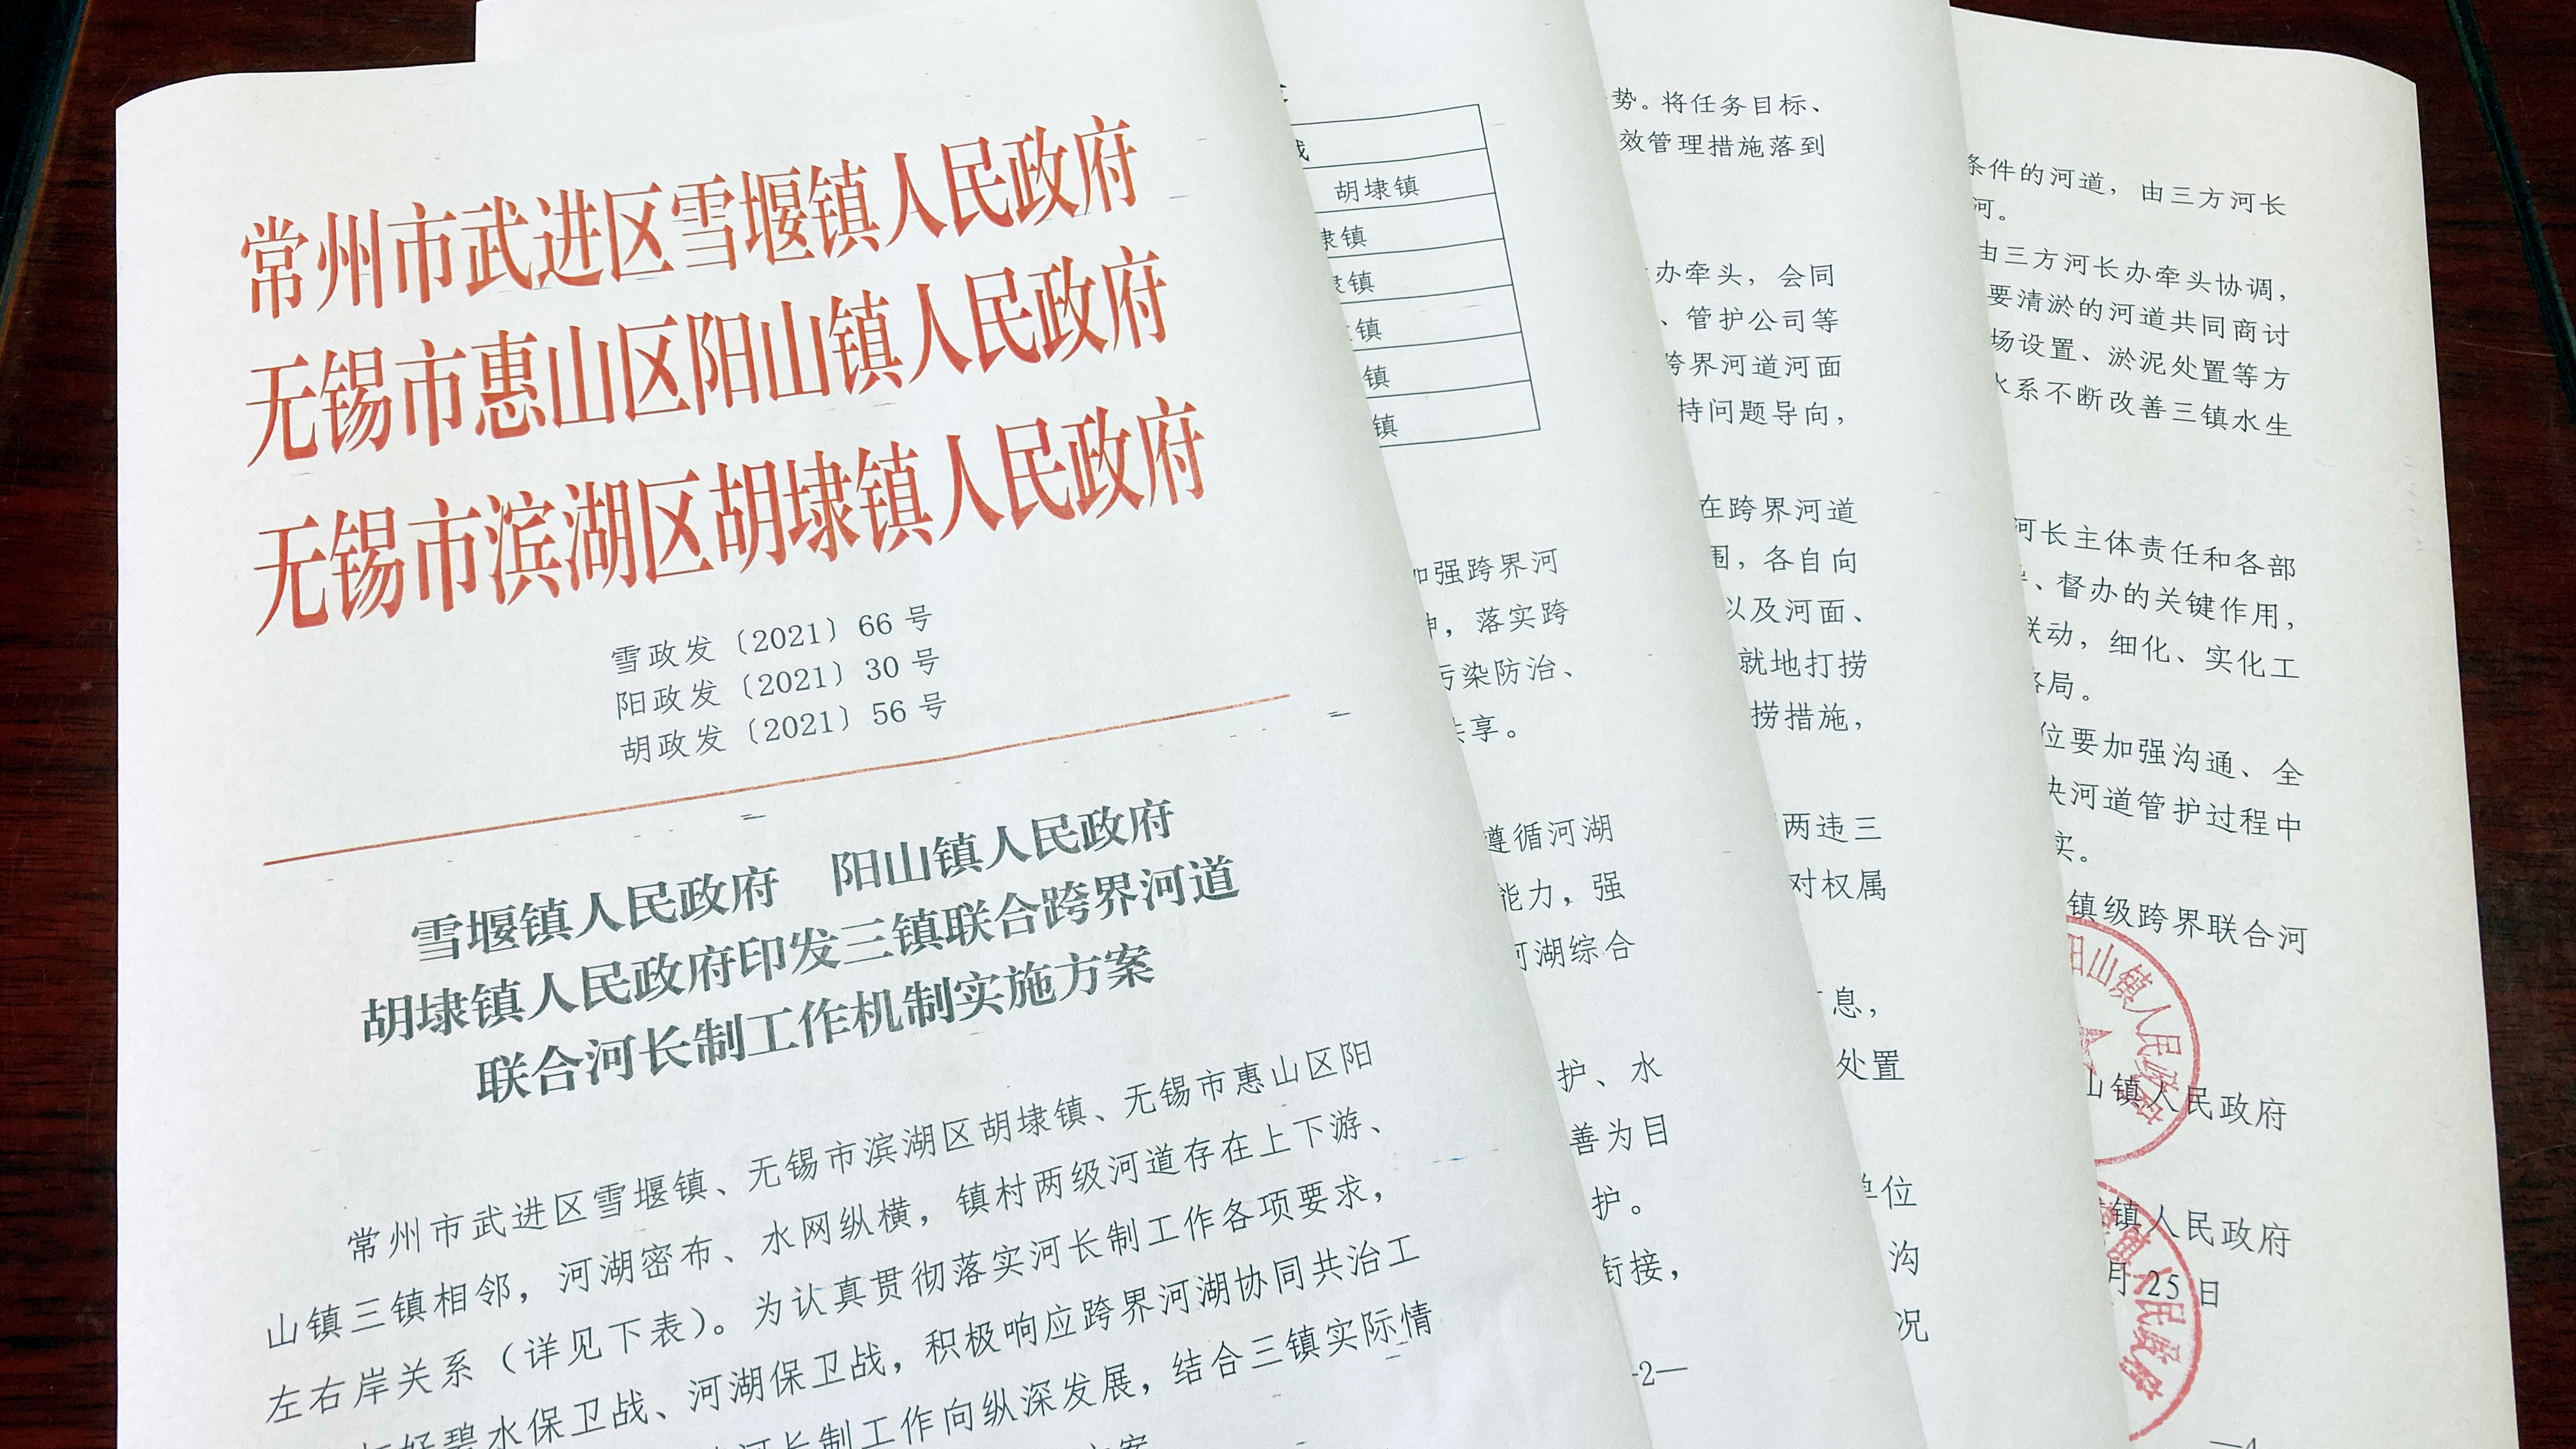 常州市武进区雪堰镇人民政府
无锡市惠山区阳山镇人民政府
无锡市滨湖区胡埭镇人民政府
雪政发〔2021〕66 号
阳政发〔2021〕30 号
胡政发〔2021〕56 号
雪堰镇人民政府 阳山镇人民政府
胡埭镇人民政府印发三镇联合跨界河道
联合河长制工作机制实施方案
常州市武进区雪堰镇、无锡市滨湖区胡埭镇、无锡市惠山区阳
山镇三镇相邻，河湖密布、水网纵横，镇村两级河道存在上下游、
左右岸关系（详见下表）。为认真贯彻落实河长制工作各项要求，
好碧水保卫战、河湖保卫战，积极响应跨界河湖协同共治工
河长制工作向纵深发展，结合三镇实际情
胡埭镇
埭镇
镇
镇
镇
镇
加强跨界河
，落实跨
污染防治、
共享。
遵循河湖
能力，强
河湖综合
护、水
善为目
护。
衔接，
—2—
势。将任务目标、
效管理措施落到
办牵头，会同
、管护公司等
跨界河道河面
持问题导向，
在跨界河道
围，各自向
以及河面、
就地打捞
捞措施，
两违三
对权属
息，
处置
单位
沟
况
条件的河道，由三方河长
河。
由三方河长办牵头协调，
要清淤的河道共同商讨
场设置、淤泥处置等方
水系不断改善三镇水生
河长主体责任和各部
、督办的关键作用，
联动，细化、实化工
格局。
位要加强沟通、全
决河道管护过程中
实。
镇级跨界联合河
阳山镇人民政府
山镇人民政府
镇人民政府
镇人民政府
月 25 日